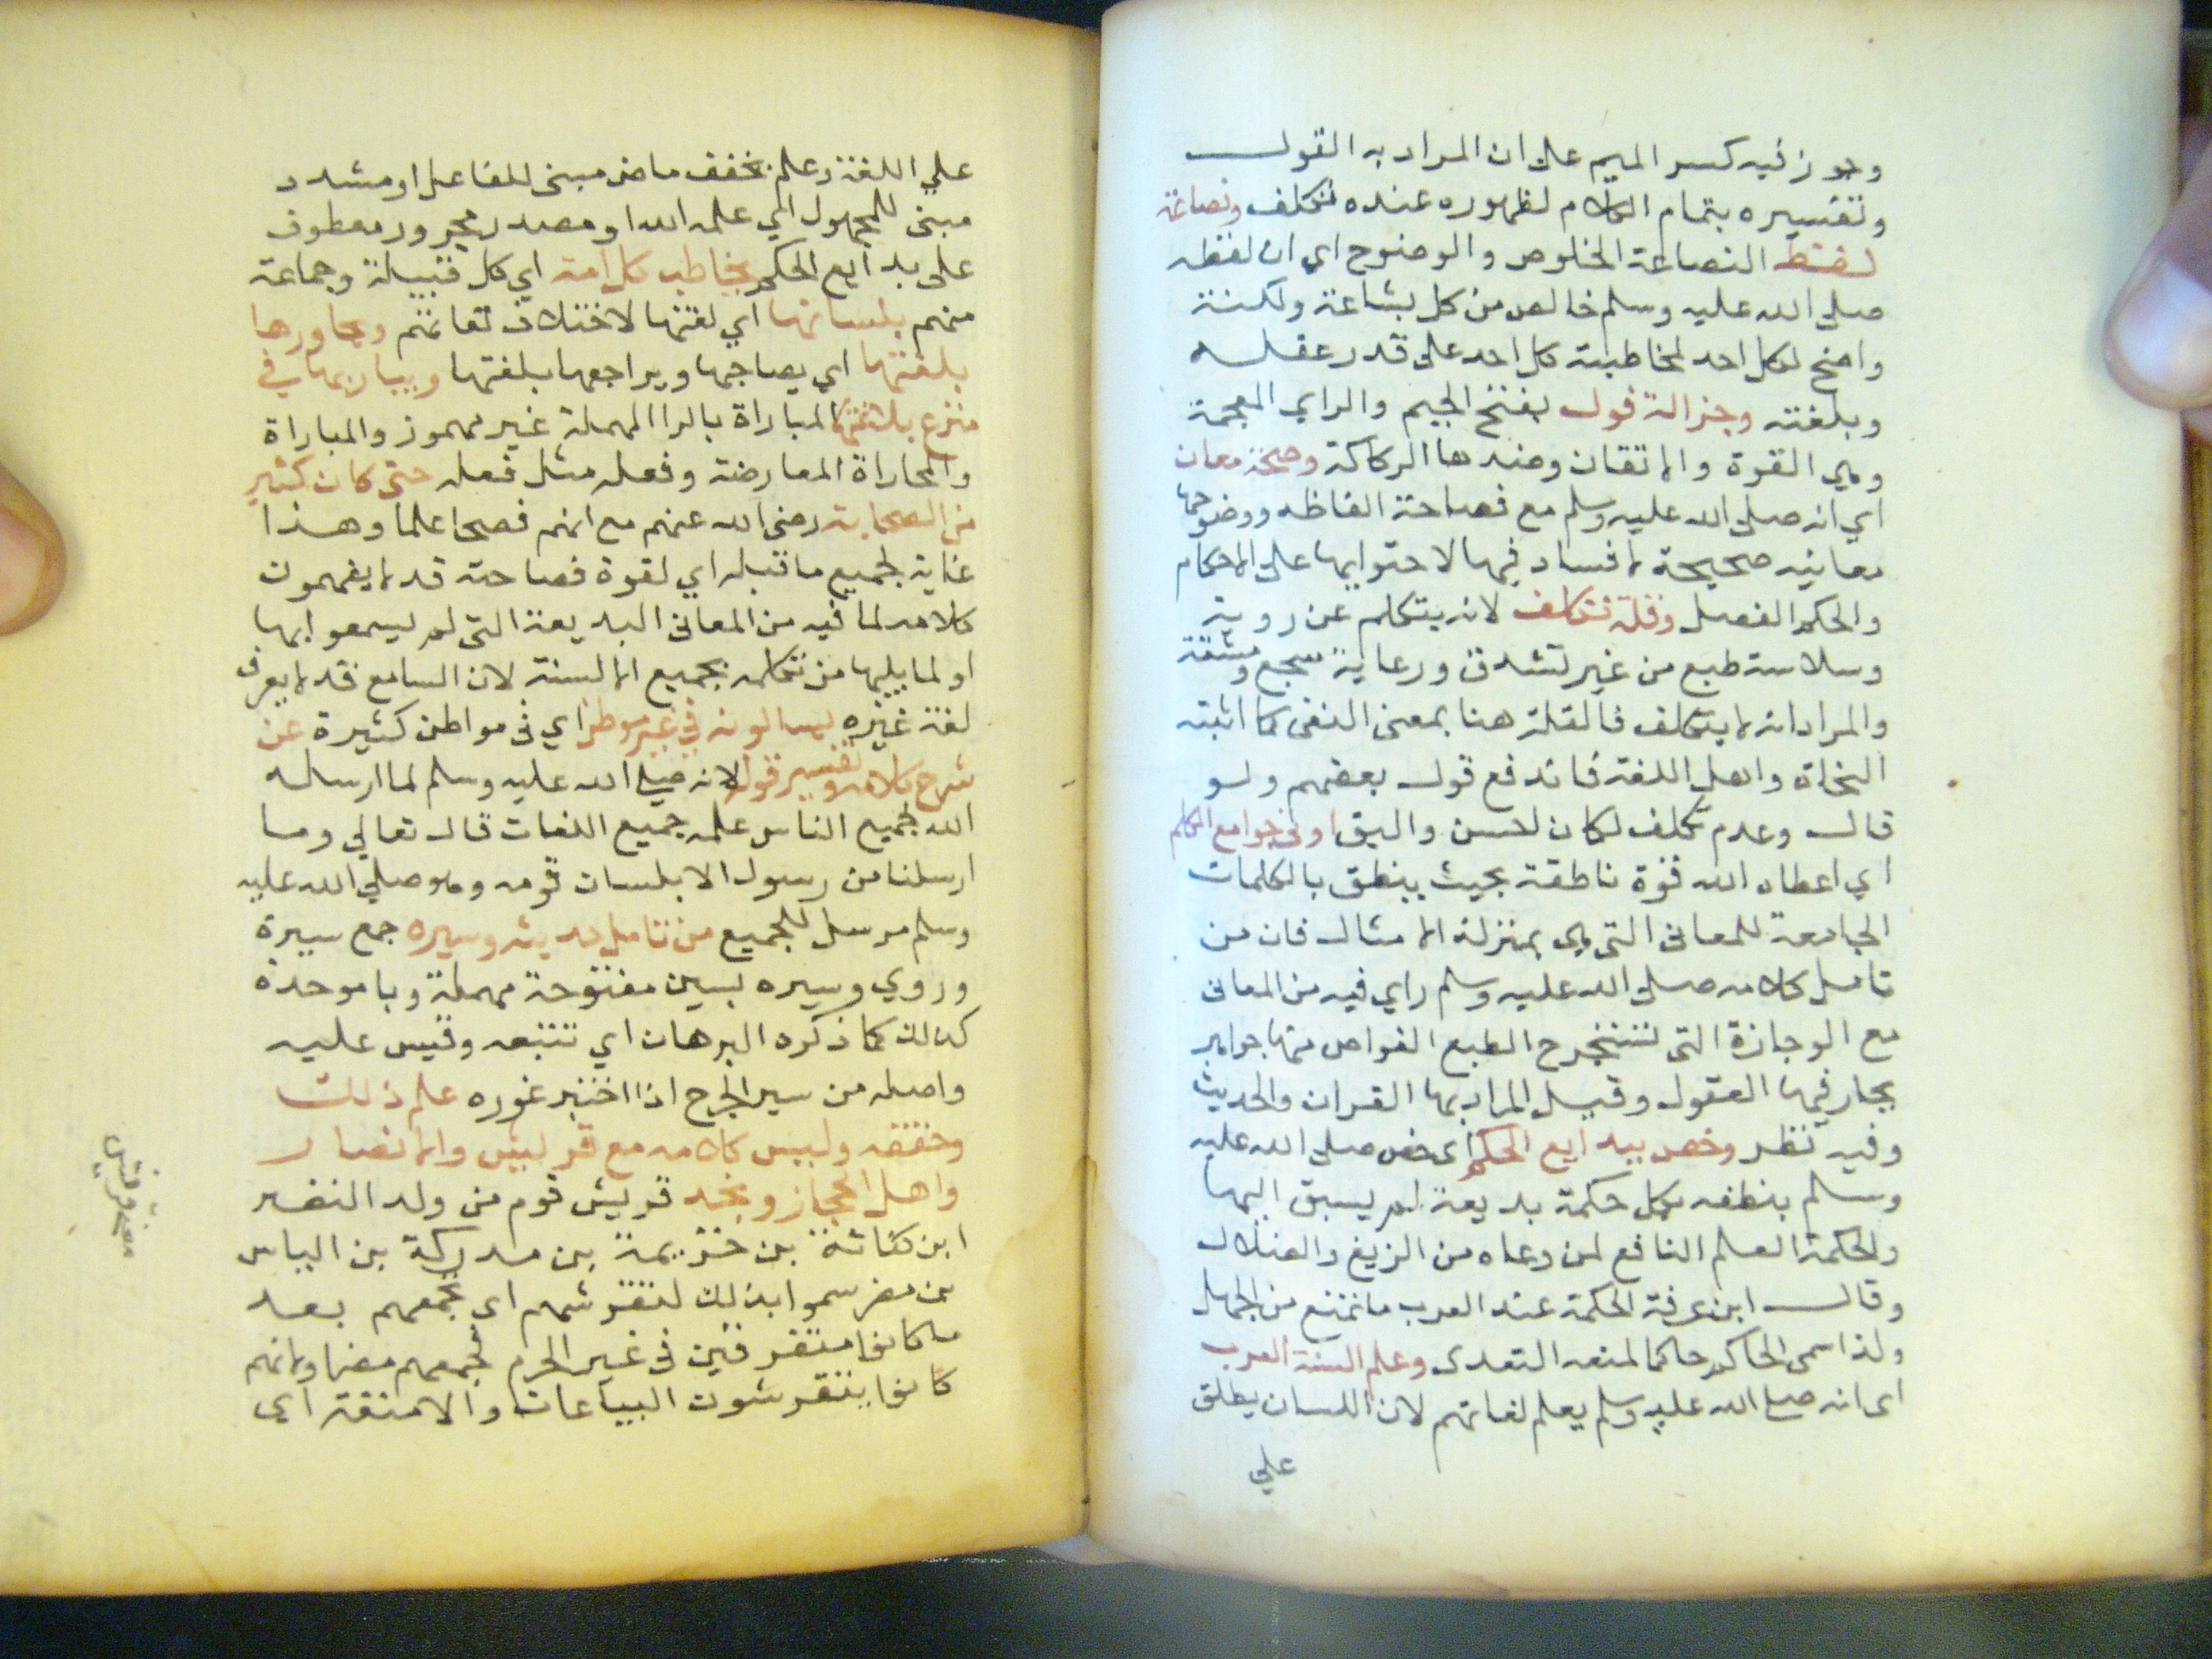 وجوز فيه كسر الميم على ان المراد به القول
وتفسيره بتمام الكلام لظهوره عنده تكلف ونصاعة
لفظ النصاعة الخلوص والوضوح اي ان لفظه
صلى الله عليه وسلم خالص من كل بشاعة ولكنة
واضح لكل احد لمخاطبته كل احد على قدر عقله
وبلغته وجزالة قول بفتح الجيم والزاي المعجمة
وهي القوة والاتقان وضدها الركاكة وصحة معان
اي انه صلى الله عليه وسلم مع فصاحة الفاظه ووضوحها
معانيه صحيحة لا فساد فيها لاحتوايها على الاحكام
والحكم الفصل وقلة تكلف لانه يتكلم عن روية
وسلاسة طبع من غير تشدق ورعاية سجع ومشقة
والمراد انه لا يتكلف فالقلة هنا بمعنى النفى كما اثبته
النحاة واهل اللغة فاندفع قول بعضهم ولو
قال وعدم تكلف لكان احسن واليق اوتى جوامع الكلم
اي اعطاه الله قوة ناطقة بحيث ينطق بالكلمات
الجامعة للمعانى التى هى بمنزلة الامثال فان من
تامل كلامه صلى الله عليه وسلم راي فيه من المعانى
مع الوجازة التى تستخرج الطبع الغواص منها جواهر
يحار فيها العقول وقيل المراد بها القران والحديث
وفيه نظر وخص ببدايع الحكم اى خص صلى الله عليه
وسلم بنطقه بكل حكمة بديعة لم يسبق اليها
والحكمة العلم النافع لمن وعاه من الزيغ والضلال
وقال ابن عرفة الحكمة عند العرب ما تمنع من الجهل
ولذا سمى الحاكم حاكما لمنعه التعدى وعلم السنة العرب
اى انه صلى الله عليه وسلم يعلم لغاتهم لان اللسان يطلق
على
علي اللغة وعلم مخفف ماض مبنى للفاعل او مشدد
مبنى للمجهول اي علمه الله او مصدر مجرور معطوف
على بدايع الحكم يخاطب كل امة اي كل قبيلة وجماعة
منهم بلسانها اي لغتها لاختلاف لغاتهم ويحاورها
بلغتها اي يصاحبها ويراجعها بلغتها ويباريها في
منزع بلاغتها المباراة بالرا المهملة غير مهموز والمباراة
والمجاراة المعارضة وفعله مثل فعله حتى كان كثير
من الصحابة رضى الله عنهم مع انهم فصحا علما وهذا
غاية لجميع ما قبله اي لقوة فصاحته قد لا يفهمون
كلامه لما فيه من المعانى البديعة التى لم يسمعوا بها
او لما يليها من تكلمه بجميع الالسنة لان السامع قد لا يعرف
لغة غيره يسالونه في غير موطن اي فى مواطن كثيرة عن
شرح كلامه وتفسير قوله لانه صلى الله عليه وسلم لما ارسله
الله لجميع الناس علمه جميع اللغات قال تعالي وما
ارسلنا من رسول الا بلسان قومه وهو صلي الله عليه
وسلم مرسل للجميع من تامل حديثه وسيره جمع سيرة
وروي وسبره بسين مفتوحة مهملة وبا موحدة
كذلك كما ذكره البرهان اي تتبعه وقيس عليه
واصله من سبر الجرح اذا اختبر غوره علم ذلك
وحققه وليس كلامه مع قريش والانصار
واهل الحجاز ونجد قريش قوم من ولد النضر
ابن كنانة بن خزيمة بن مدركة بن الياس
بن مضر سموا بذلك لتقرشهم اى تجمعهم بعد
ما كانوا متفرقين فى غير الحرم لجمعهم
كانوا يتقرشون البياعات والامتعة اى